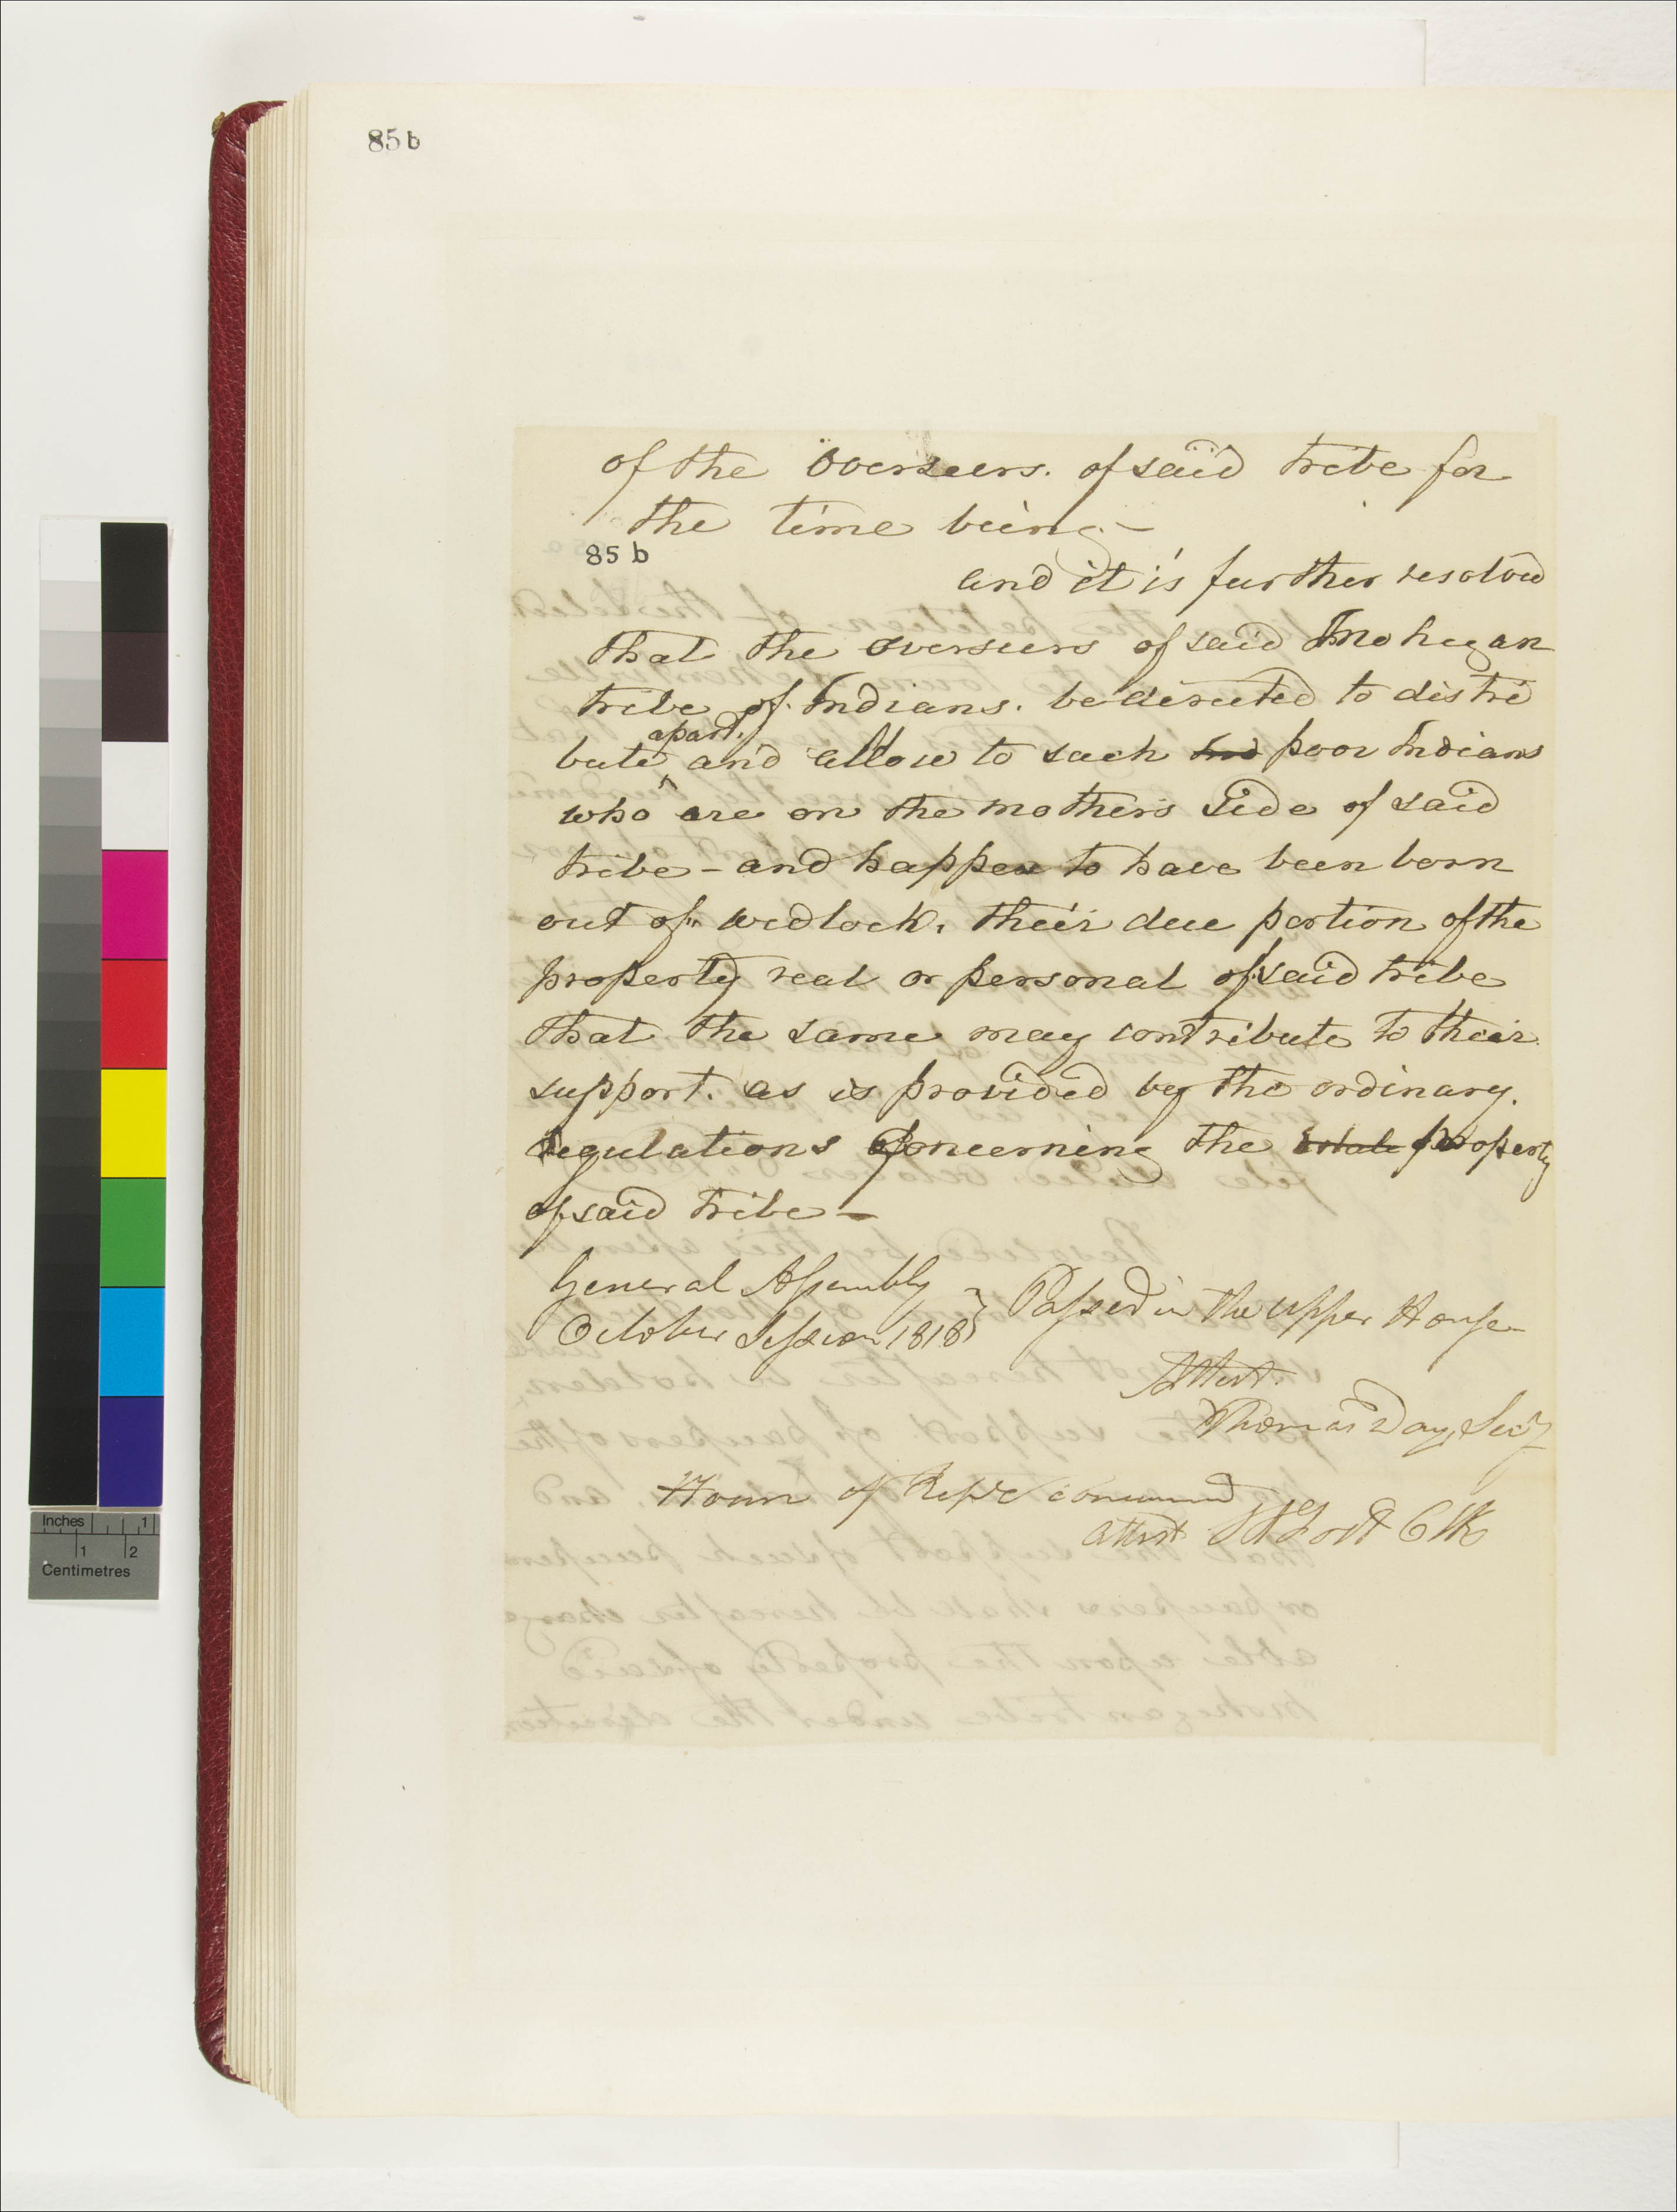 85 b
of the Overseers. of said tribe for
the time being. —
85 b
and it is further resolved
that the overseers of said Mohegan
tribe of Indians. be directed to distri
apart,
bute, and allow to such Ind poor Indians
who are on the mothers side of said
tribe - and happen to have been born
out of wedlock, their due portion of the
property real or personal of said tribe
that the same may contribute to their
support. as is provided by the ordinary.
regulations concerning the estate property
of said tribe —
General Assembly
October Session 1818
} Passed in the Upper House
Attest.
Thomas Day, Secy
House of Reps concurred
attest Clk
Inches 1
1 2
Centimetres